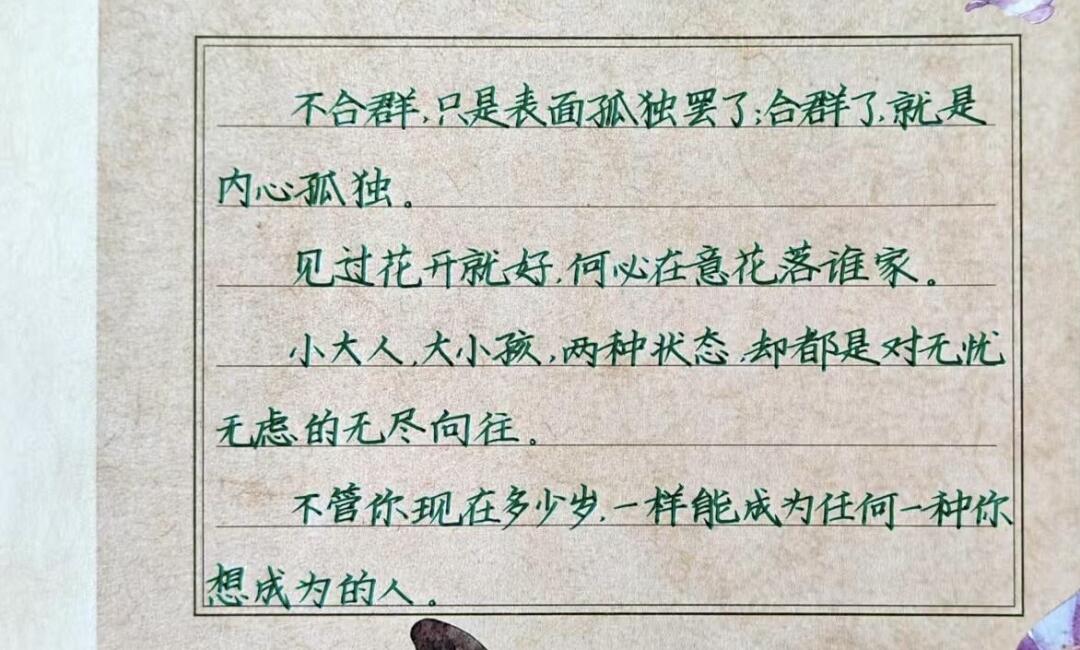 不合群,只是表面孤独罢了;合群了,就是
内心孤独。
见过花开就好,何必在意花落谁家。
小大人,大小孩,两种状态,却都是对无忧
无虑的无尽向往。
不管你现在多少岁,一样能成为任何一种你
想成为的人。